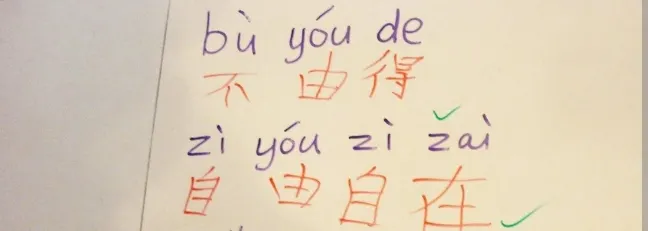 bù yóu de
不由得
zì yóu zì zaì
自由自在